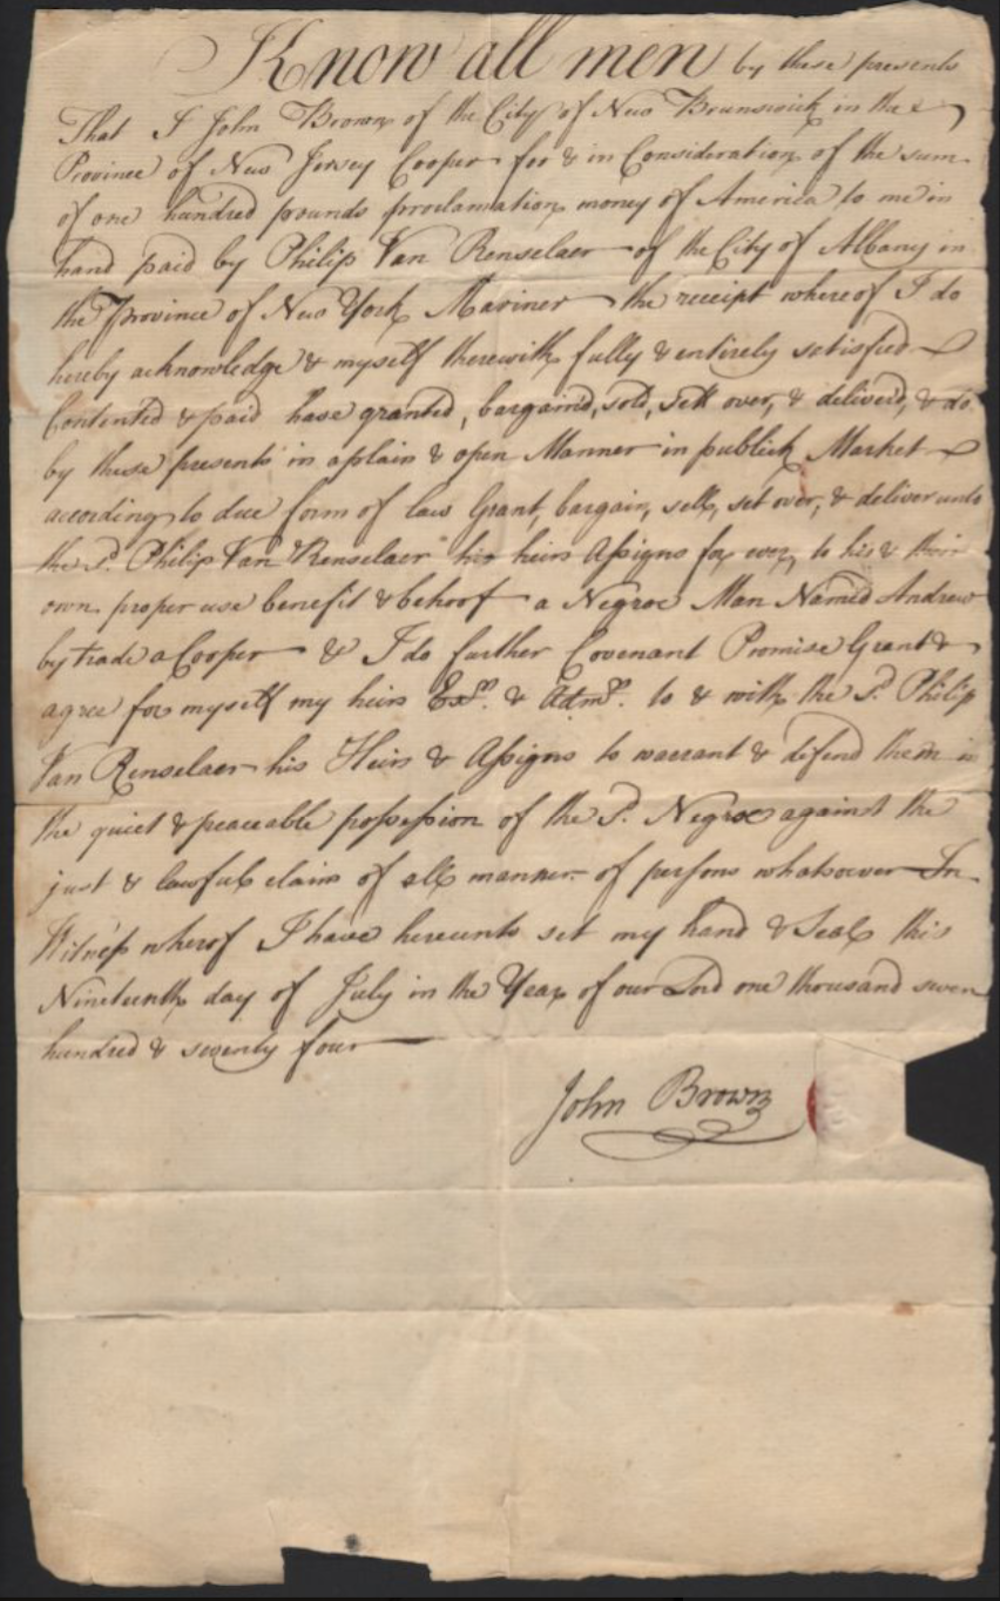 Know all men by these presents
That I John Brown of the City of New Brunswick in the
Province of New Jersey Cooper for & in Consideration of the sum
of one hundred pounds proclamation money of America to me in
hand paid by Philip Van Renselaer of the City of Albany in
the Province of New York Mariner the receipt whereof I do
hereby acknowledge & myself therewith fully & entirely satisfied
Contented & paid have granted, bargain'd, sold, sett over, & deliver'd, & do
by these presents in a plain & open Manner in publick Market
according to due form of law Grant, bargain, sell, set over, & deliver unto
the Sd. Philip Van Renselaer his heirs Assigns for ever, to his & their
own proper use benefit & behoof a Negroe Man Named Andrew
by trade a Cooper & I do further Covenant Promise Grant &
agree for myself my heirs Exrs. & Admrs. to & with the Sd. Philip
Van Renselaer his Heirs & Assigns to warrant & defend them in
the quiet & peaceable possession of the Sd. Negroe against the
just & lawful claim of all manner of persons whatsoever In
Witness wherof I have hereunto set my hand & Seal this
Nineteenth day of July in the Year of our Lord one thousand seven
hundred & seventy four
John Brown